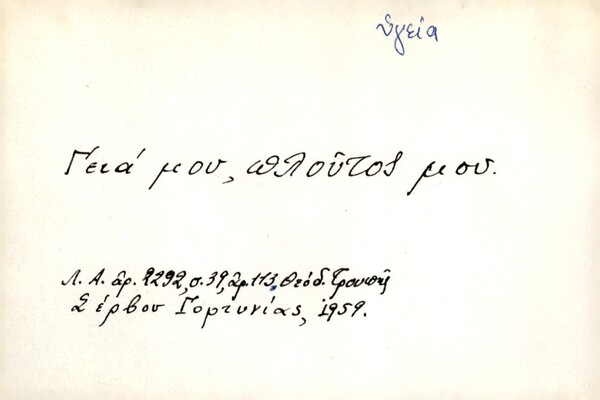 ὑγεία
Γειά μου, πλοῦτος μου.
Λ. Α. ἀρ. 2292, σ. 39, ἀρ. 113, Θεόδ. Τρουπῆς
Σέρβου Γορτυνίας, 1959.